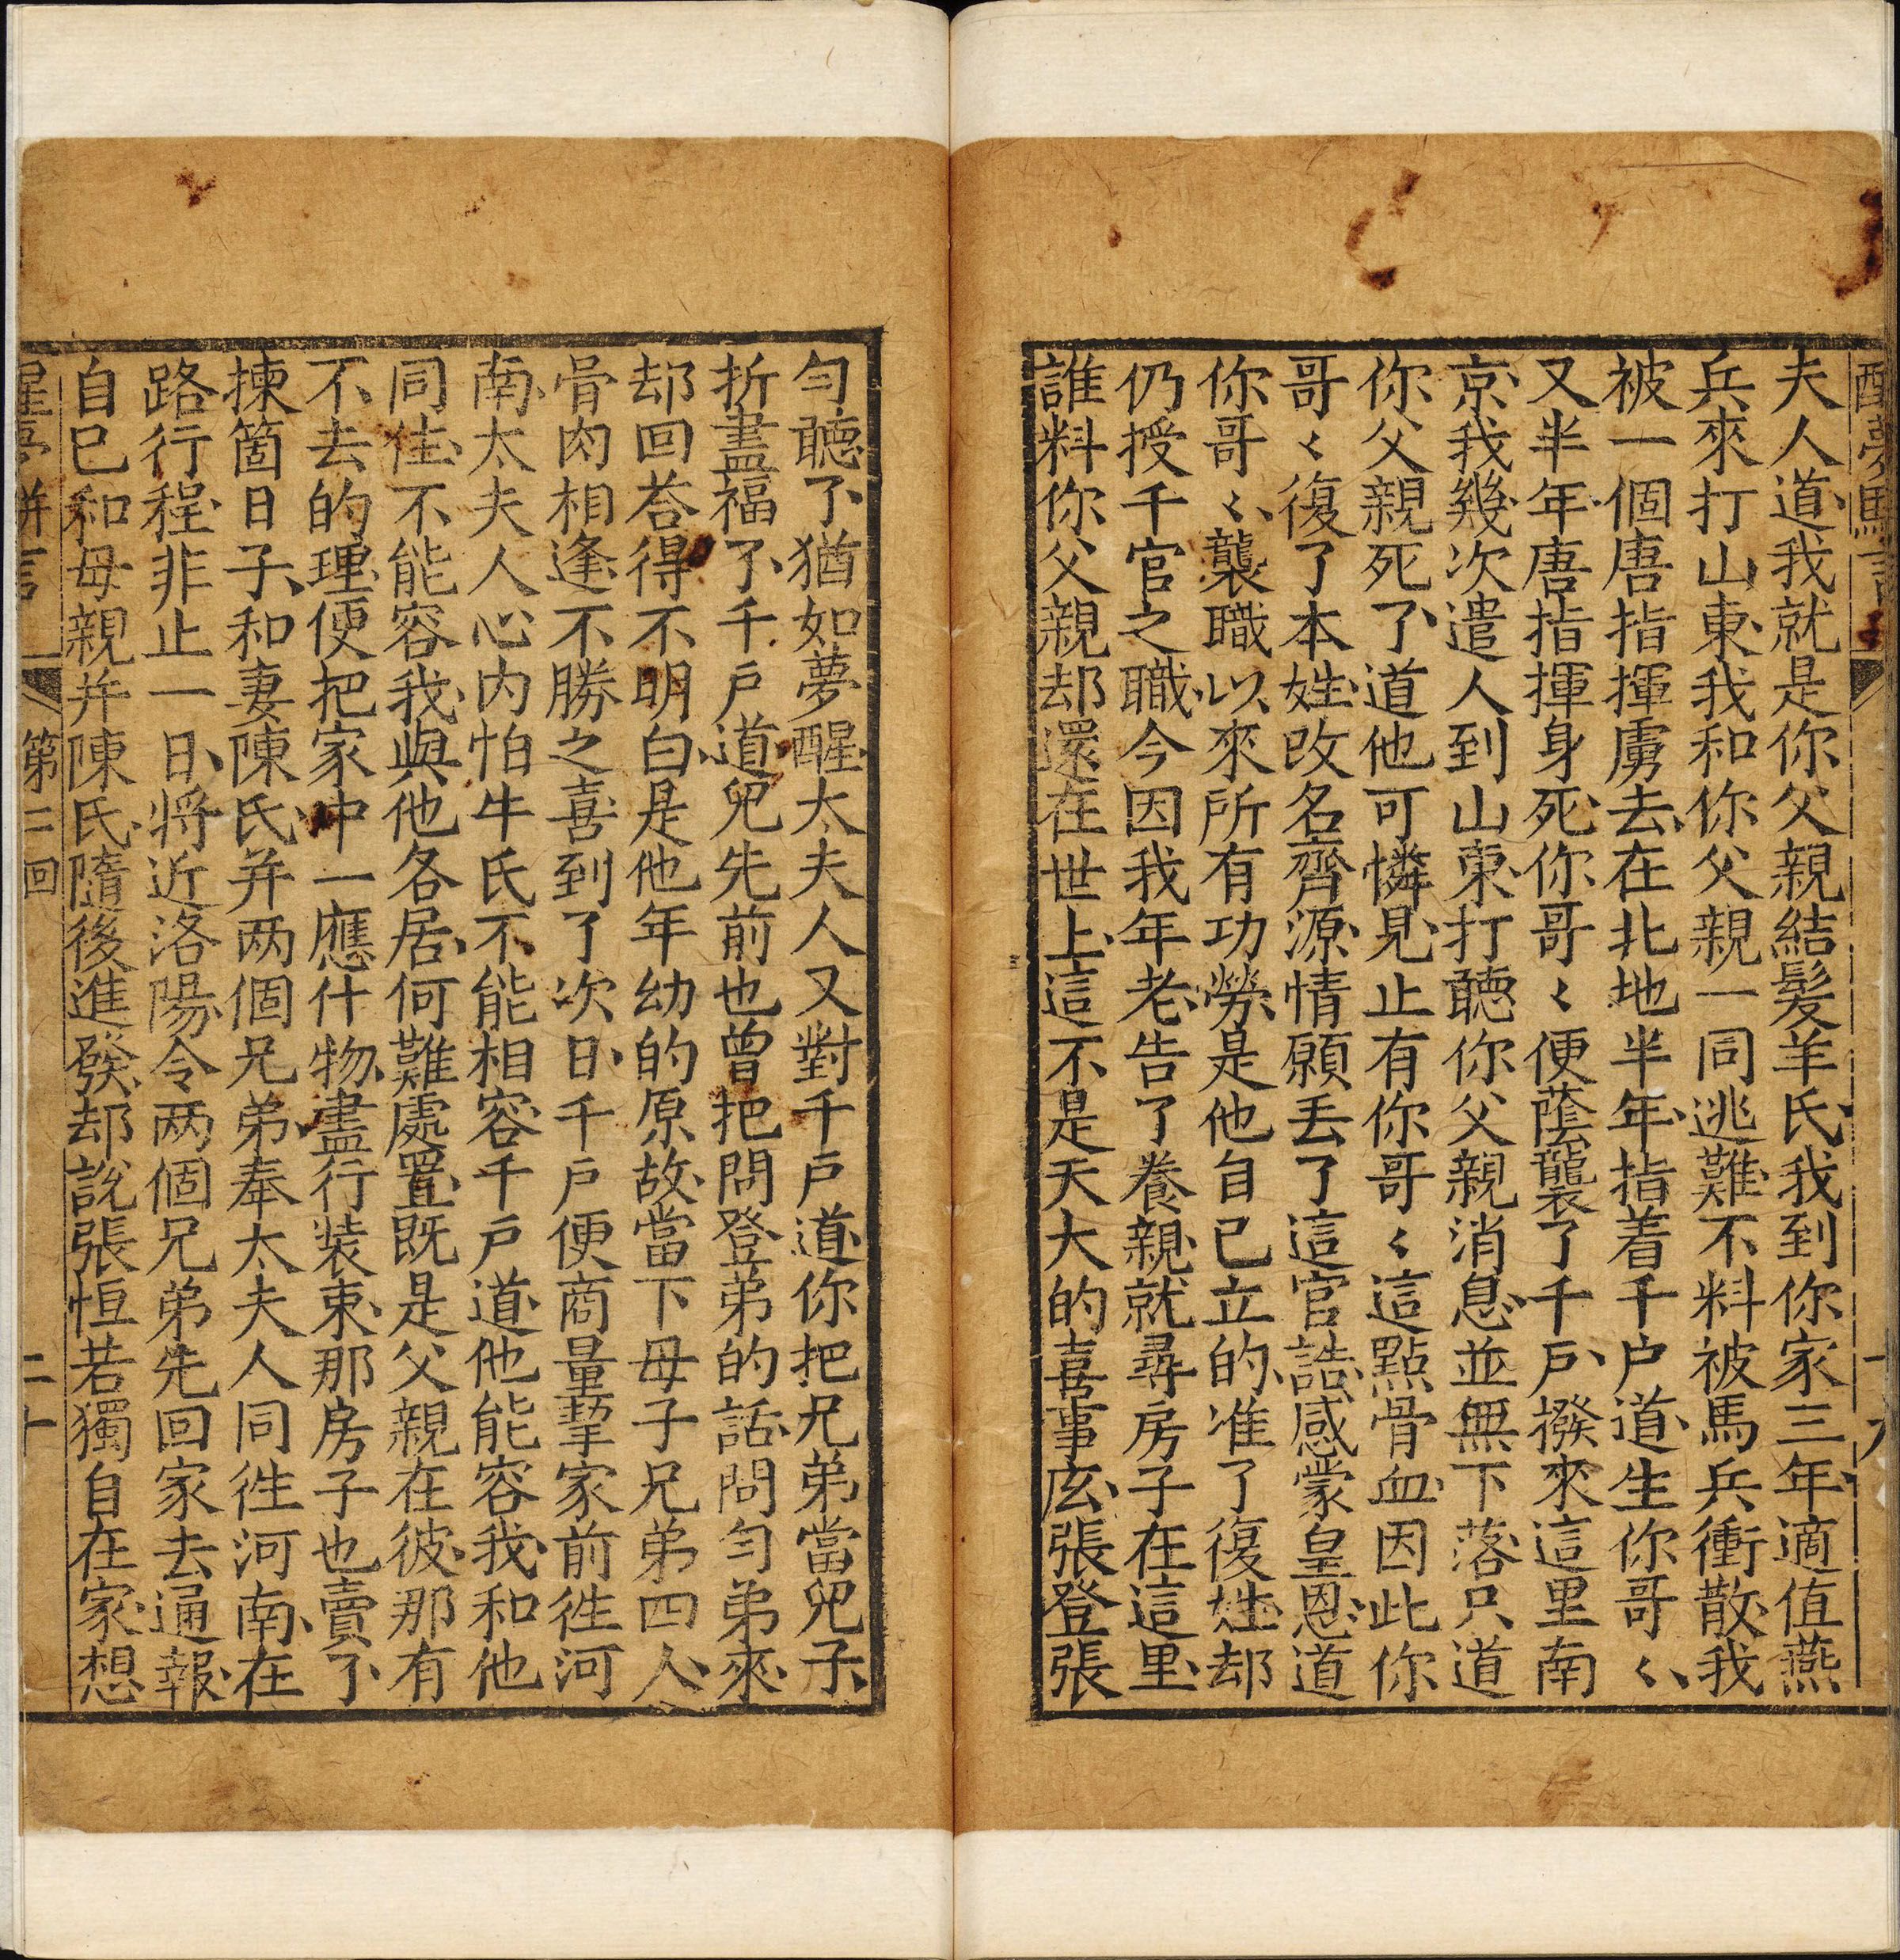 醒夢駢言
夫人道、我就是你父親結髮羊氏、我到你家三年、適值燕
兵來打山東、我和你父親一同逃難、不料被馬兵衝散、我
被一個唐指揮虜去、在北地半年、指着千户道、生你哥〻、
又半年、唐指揮身死、你哥〻便蔭襲了千戶、撥來這里南
京、我幾次遣人到山東、打聽你父親消息、並無下落、只道
你父親死了、道他可憐見、止有你哥〻這點骨血、因此你
哥〻復了本姓、改名齊源、情願丟了這官誥、感蒙皇恩、道
你哥〻、襲職以來、所有功勞、是他自己立的、准了復姓、却
仍授千官之職、今因我年老、告了養親、就尋房子在這里、
誰料你父親却還在世上、這不是天大的喜事庅、張登張
勻聽了、猶如夢醒、太夫人又對千戶道、你把兄弟當兒子、
折盡福了、千戶道、兒先前也曾把問登弟的話、問勻弟來、
却回荅得不明白、是他年幼的原故、當下母子兄弟四人、
骨肉相逢、不勝之喜、到了次日、千戶便商量挈家前徃河
南、太夫人心內怕牛氏不能相容、千戶道、他能容我、和他
同住、不能容我、與他各居、何難處置、既是父親在彼、那有
不去的理、便把家中一應什物、盡行裝束、那房子也賣了、
揀箇日子、和妻陳氏、并两個兄弟、奉太夫人同徃河南、在
路行程、非止一日、將近洛陽、令两個兄弟先回家去通報、
自巳和母親并陳氏、隨後進發、却說張恒若獨自在家、想
醒夢駢言
第二回
二十